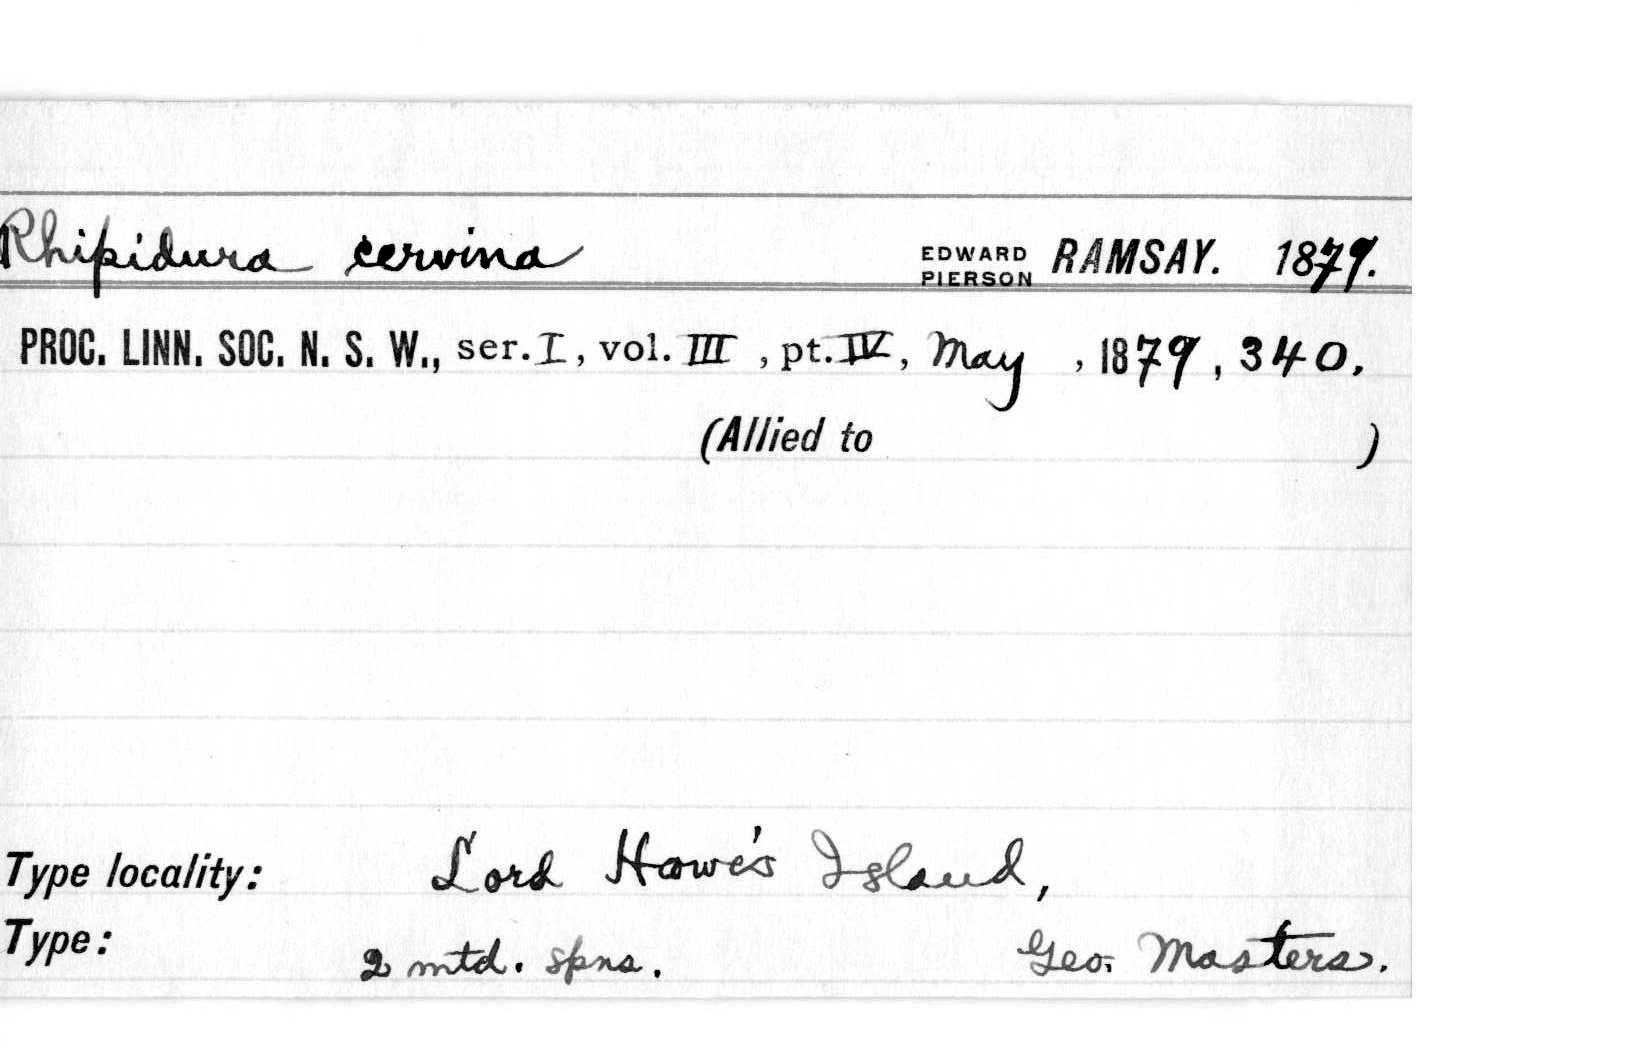 Rhipidura cervina EDWARD PIERSON RAMSAY. 1879.
PROC. LINN. SOC. N. S. W., ser. I, vol. III, pt. IV, May, 1879, 340.
(Allied to )
Type locality: Lord Howe's Island,
Type: 2 mtd. spns. Geo. Masters.